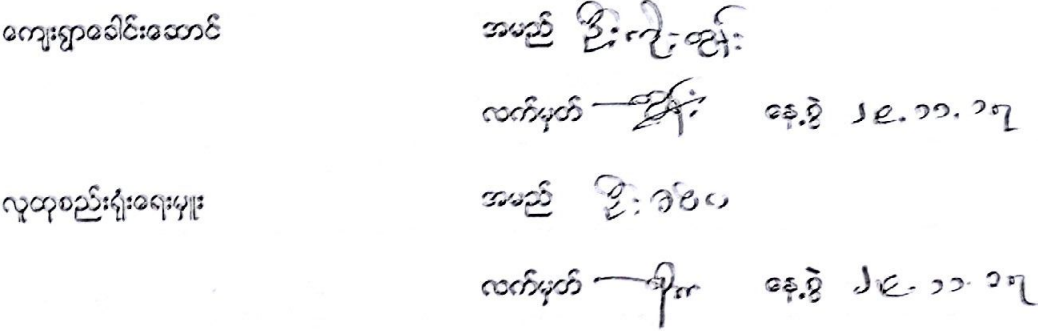 ကျေးရွာခေါင်းဆောင် အမည် ဦး
လက်မှတ် နေ့စွဲ ၂၉.၁၁.၁၇
လူထုစည်းရုံးရေးမှူး အမည် ဦး
လက်မှတ် နေ့စွဲ ၂၉.၁၁.၁၇